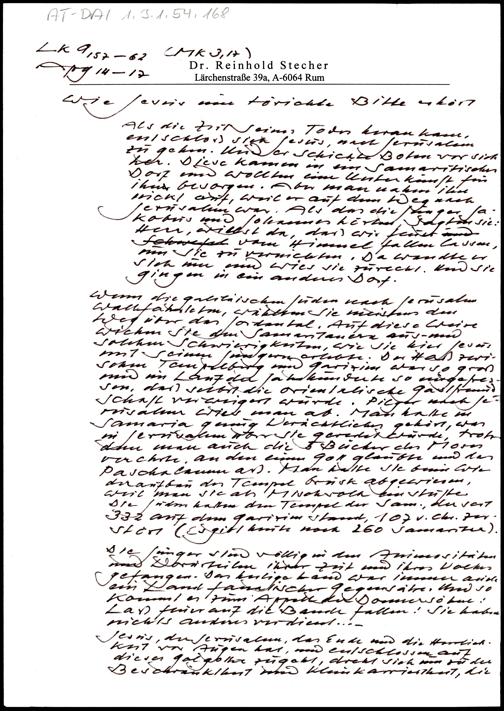 AT-DAI 1.3.1.54.168
Lk 9,
(Mk 3,17)
Apg 14-17
Dr. Reinhold Stecher
Lärchenstraße 39a, A-6064 Rum
Wie Jesus eine törichte Bitte erhört
Als die Zeit seines Todes herankam,
entschloß sich Jesus, nach Jerusalem
zu gehen. Und er schickte Boten vor sich
her. Diese kamen in ein samaritisches
Dorf und wollten eine Unterkunft für
ihn besorgen. Aber man nahm ihn
nicht auf, weil er auf dem Weg nach
Jerusalem war. Als das die Jünger Ja-
kobus und Johannes hörten, sagten sie:
Herr, willst du, daß wir Feuer und
Schwefel vom Himmel fallen lassen,
um sie zu vernichten. Da wandte er
sich um und wies sie zurecht. Und sie
gingen in ein anderes Dorf.
Wenn die galiläischen Juden nach Jerusalem
wallfahrteten, wählten sie meistens den
Weg über das Jordantal. Auf diese Weise
wichen sie den Samaritanern aus und
solchen Schwierigkeiten, wie sie hier Jesus
mit seinen Jüngern erlebte. Der Haß zwi-
schen Tempelberg und Garizim war so groß
und im Lauf der Jahrhunderte so
daß selbst die orientalische Gastfreund-
schaft verweigert wurde. Pilger nach Je-
rusalem wies man ab. Man hatte in
Samaria genug Verächtliches gehört, was
in Jerusalem über sie geredet wurde, trotz-
dem man auch die 5 Bücher des Moses
verehrte, an den einen Gott glaubte und das
Paschalamm aß. Man hatte sie beim Wie-
deraufbau des Tempels brüsk abgewiesen,
weil man sie als Mischvolk einstufte.
Die Juden hatten den Tempel der Sam., der seit
332 auf dem Garizim stand, 107 v. Chr. zer-
stört (Es gibt heute noch 260 Samariter).
Die Jünger sind völlig in den Animositäten
und Vorurteilen ihrer Zeit und ihres Volkes
gefangen. Das heilige Land war immer auch
ein Land fanatischer Gegensätze. Und so
kommt es zum Appell der Donnersöhne:
Laß Feuer auf die Bande fallen! Sie haben
nichts anderes verdient...
Jesus, der Jerusalem, das Ende und die Herrlich-
keit vor Augen hat, und entschlossen auf
dieses Golgotha zugeht, dreht sich um zu der
Beschränktheit und Kleinkariertheit, die